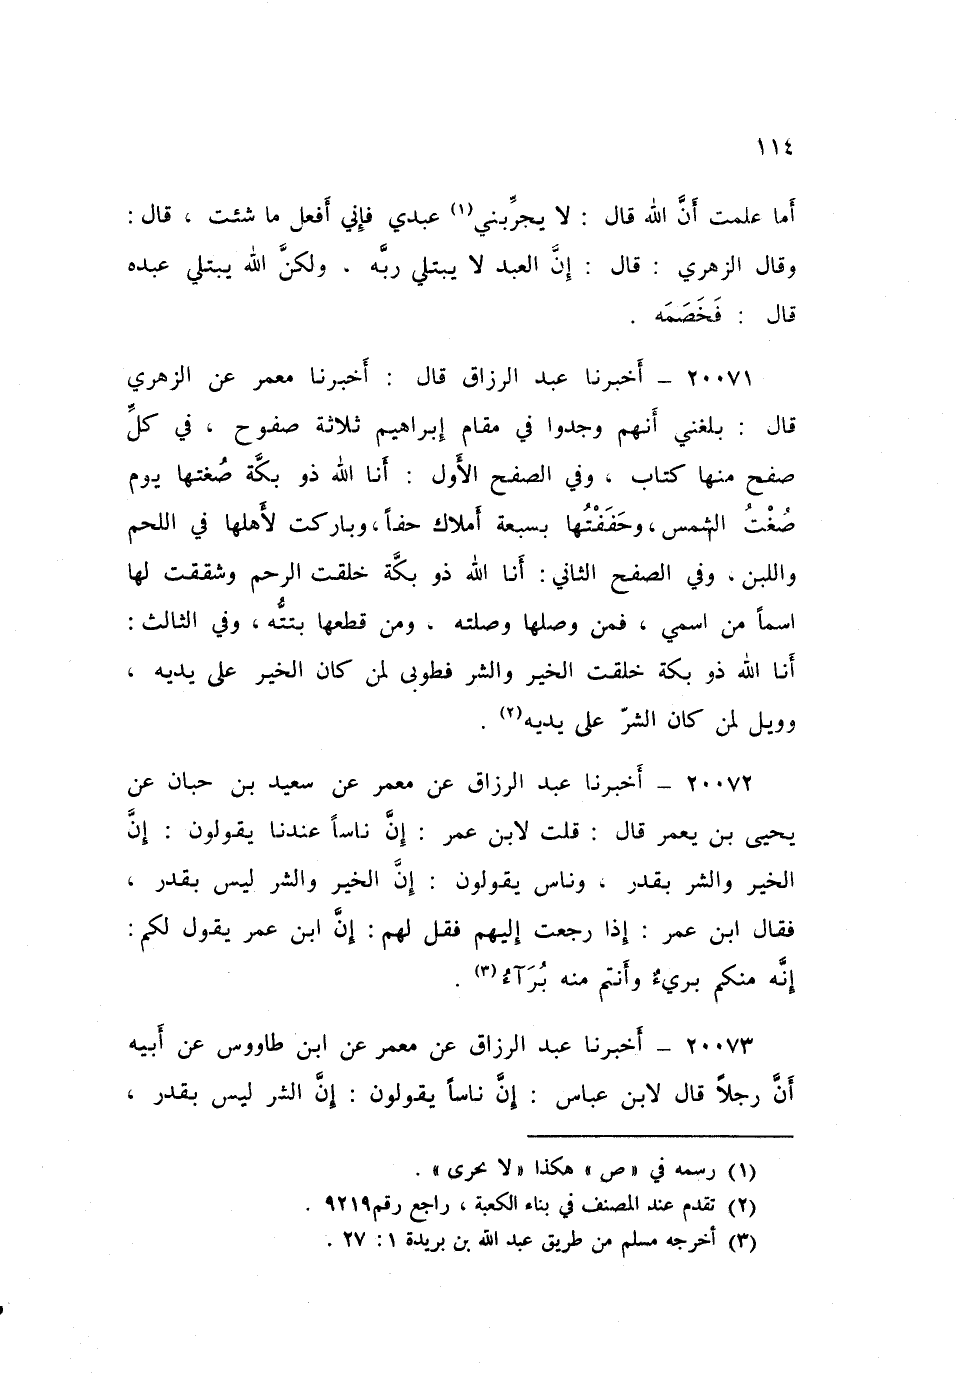 ١١٤
أما علمت أنَّ الله قال : لا يجرِّبني(١) عبدي فإني أفعل ما شئت ، قال :
وقال الزهري : قال : إنَّ العبد لا يبتلي ربَّه . ولكنَّ الله يبتلي عبده
قال : فَخَصَمَه .
٢٠٠٧١ – أخبرنا عبد الرزاق قال : أخبرنا معمر عن الزهري
قال : بلغني أنهم وجدوا في مقام إبراهيم ثلاثة صفوح ، في كلِّ
صفح منها كتاب ، وفي الصفح الأول : أنا الله ذو بكَّة صُغتها يوم
صُغْتُ الشمس ، وحَفَفْتُها بسبعة أملاك حفاً ، وباركت لأهلها في اللحم
واللبن . وفي الصفح الثاني : أنا الله ذو بكَّة خلقت الرحم وشققت لها
اسماً من اسمي ، فمن وصلها وصلته . ومن قطعها بتتُّه ، وفي الثالث :
أنا الله ذو بكة خلقت الخير والشر فطوبى لمن كان الخير على يديه ،
وويل لمن كان الشرّ على يديه(٢) .
٢٠٠٧٢ – أخبرنا عبد الرزاق عن معمر عن سعيد بن حبان عن
يحيى بن يعمر قال : قلت لابن عمر : إنَّ ناساً عندنا يقولون : إنَّ
الخير والشر بقدر ، وناس يقولون : إنَّ الخير والشر ليس بقدر ،
فقال ابن عمر : إذا رجعت إليهم فقل لهم : إنَّ ابن عمر يقول لكم :
إنَّه منكم بريءٌ وأنتم منه بُرَآءُ(٣) .
٢٠٠٧٣ – أخبرنا عبد الرزاق عن معمر عن ابن طاووس عن أبيه
أنَّ رجلاً قال لابن عباس : إنَّ ناساً يقولون : إنَّ الشر ليس بقدر ،
(١) رسمه في «ص» هكذا «لا يحرى» .
(٢) تقدم عند المصنف في بناء الكعبة ، راجع رقم ٩٢١٩ .
(٣) أخرجه مسلم من طريق عبد الله بن بريدة ١ : ٢٧ .